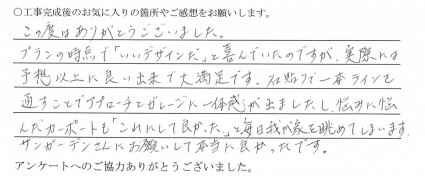 〇工事完成後のお気に入りの箇所やご感想をお願いします。
この度はありがとうございました。
プランの時点で「いいデザインだ」と喜んでいたのですが、実際には
予想以上に良い出来で大満足です。石貼りで一本ラインを
通すことでアプローチとガレージに一体感が出ましたし、悩みに悩
んだカーポートも「これにして良かった」と毎日我が家を眺めてしまいます。
サンガーデンさんにお願いして本当に良かったです。
アンケートへのご協力ありがとうございました。